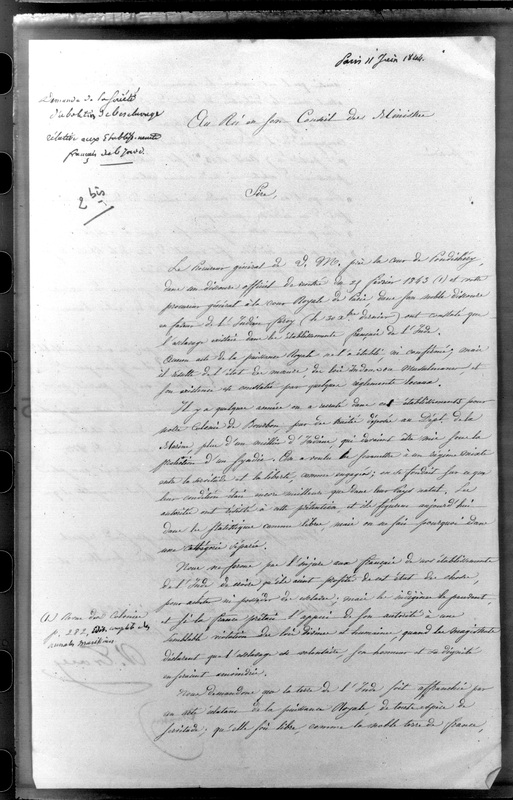 Paris 11 Juin 1844.
Demande de la Société
d'abolition de l'esclavage
relative aux Etablissements
français de l'Inde.
2 bis
Au Roi en Son Conseil des Ministres
Sire,
Le Procureur général de V. M. près la cour de Pondichéry,
dans un discours officiel de rentrée du 25 février 1843 (1) et votre
procureur général à la cour Royale de Paris dans son noble discours
en faveur de l'Indien (le 30 Xbre dernier) ont constaté que
l'esclavage existait dans les établissements français de l'Inde.
Aucun acte de la puissance Royale ne l'a établi, ni confirmé; mais
il résulte de l'état des mœurs, des lois Indoues ou Musulmanes et
son existence est constatée par quelques règlements locaux.
Il y a quelques années on a recruté dans ces établissements pour
notre Colonie de Bourbon par des traités déposés au Dépt. de la
Marine, plus d'un millier d'Indiens qui devaient être mis sous la
protection d'un Syndic. On a voulu les soumettre à un régime
entre la servitude et la liberté, comme engagés; on se fondait sur ce que
leur condition était encore meilleure que dans leur Pays natal. Les
autorités ont résisté à cette prétention et ils figurent aujourd'hui
dans les statistiques comme libres mais on ne sait pourquoi dans
une catégorie séparée.
Nous ne ferons pas l'injure aux français de vos établissements
de l'Inde de croire qu'ils aient profité de cet état de choses,
pour acheter ni posséder des esclaves; mais les indigènes le prendent,
et si la france prêtait l'appui de son autorité à une
semblable violation des lois divines et humaines, quand les magistrats
déclarent que l'esclavage est volontaire son honneur et sa dignité
en seraient amoindris.
Nous demandons que la terre de l'Inde soit affranchie par
un acte éclatant de la puissance Royale de toute espèce de
servitude; qu'elle soit libre, comme la noble terre de france,
(1) Revue des Colonies
p. 272,
annales maritimes